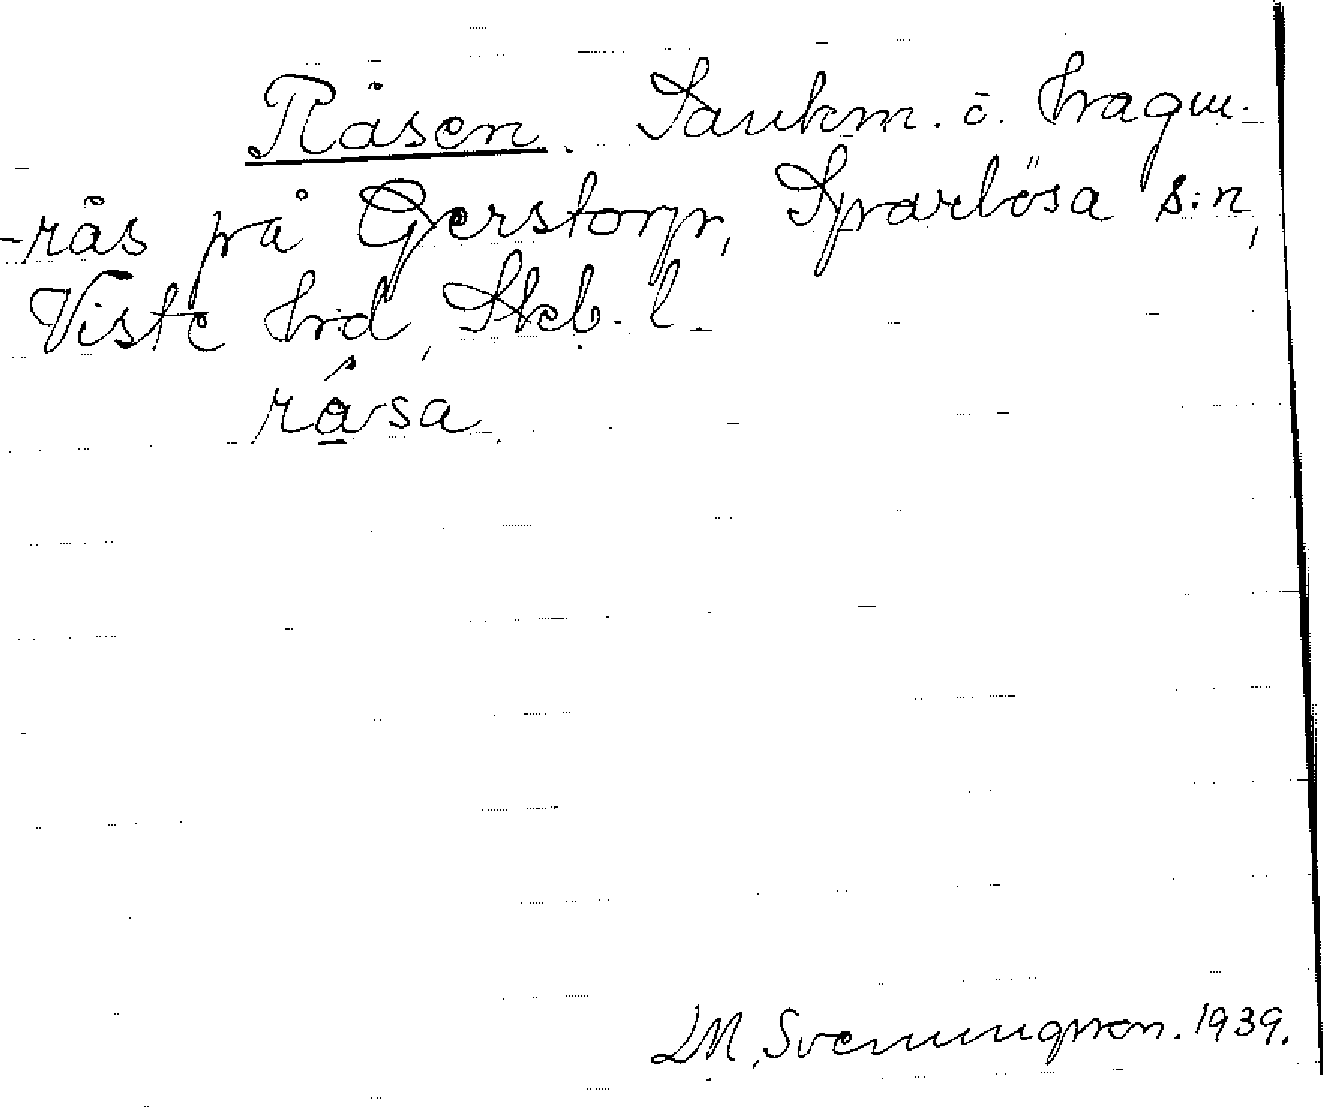 Råsen. Sankm. o. hagm-
-rås på Gerstorp, Sparlösa s:n,
Viste hrd, Skb. l.
råsa
D.M. Svenungsson. 1939.